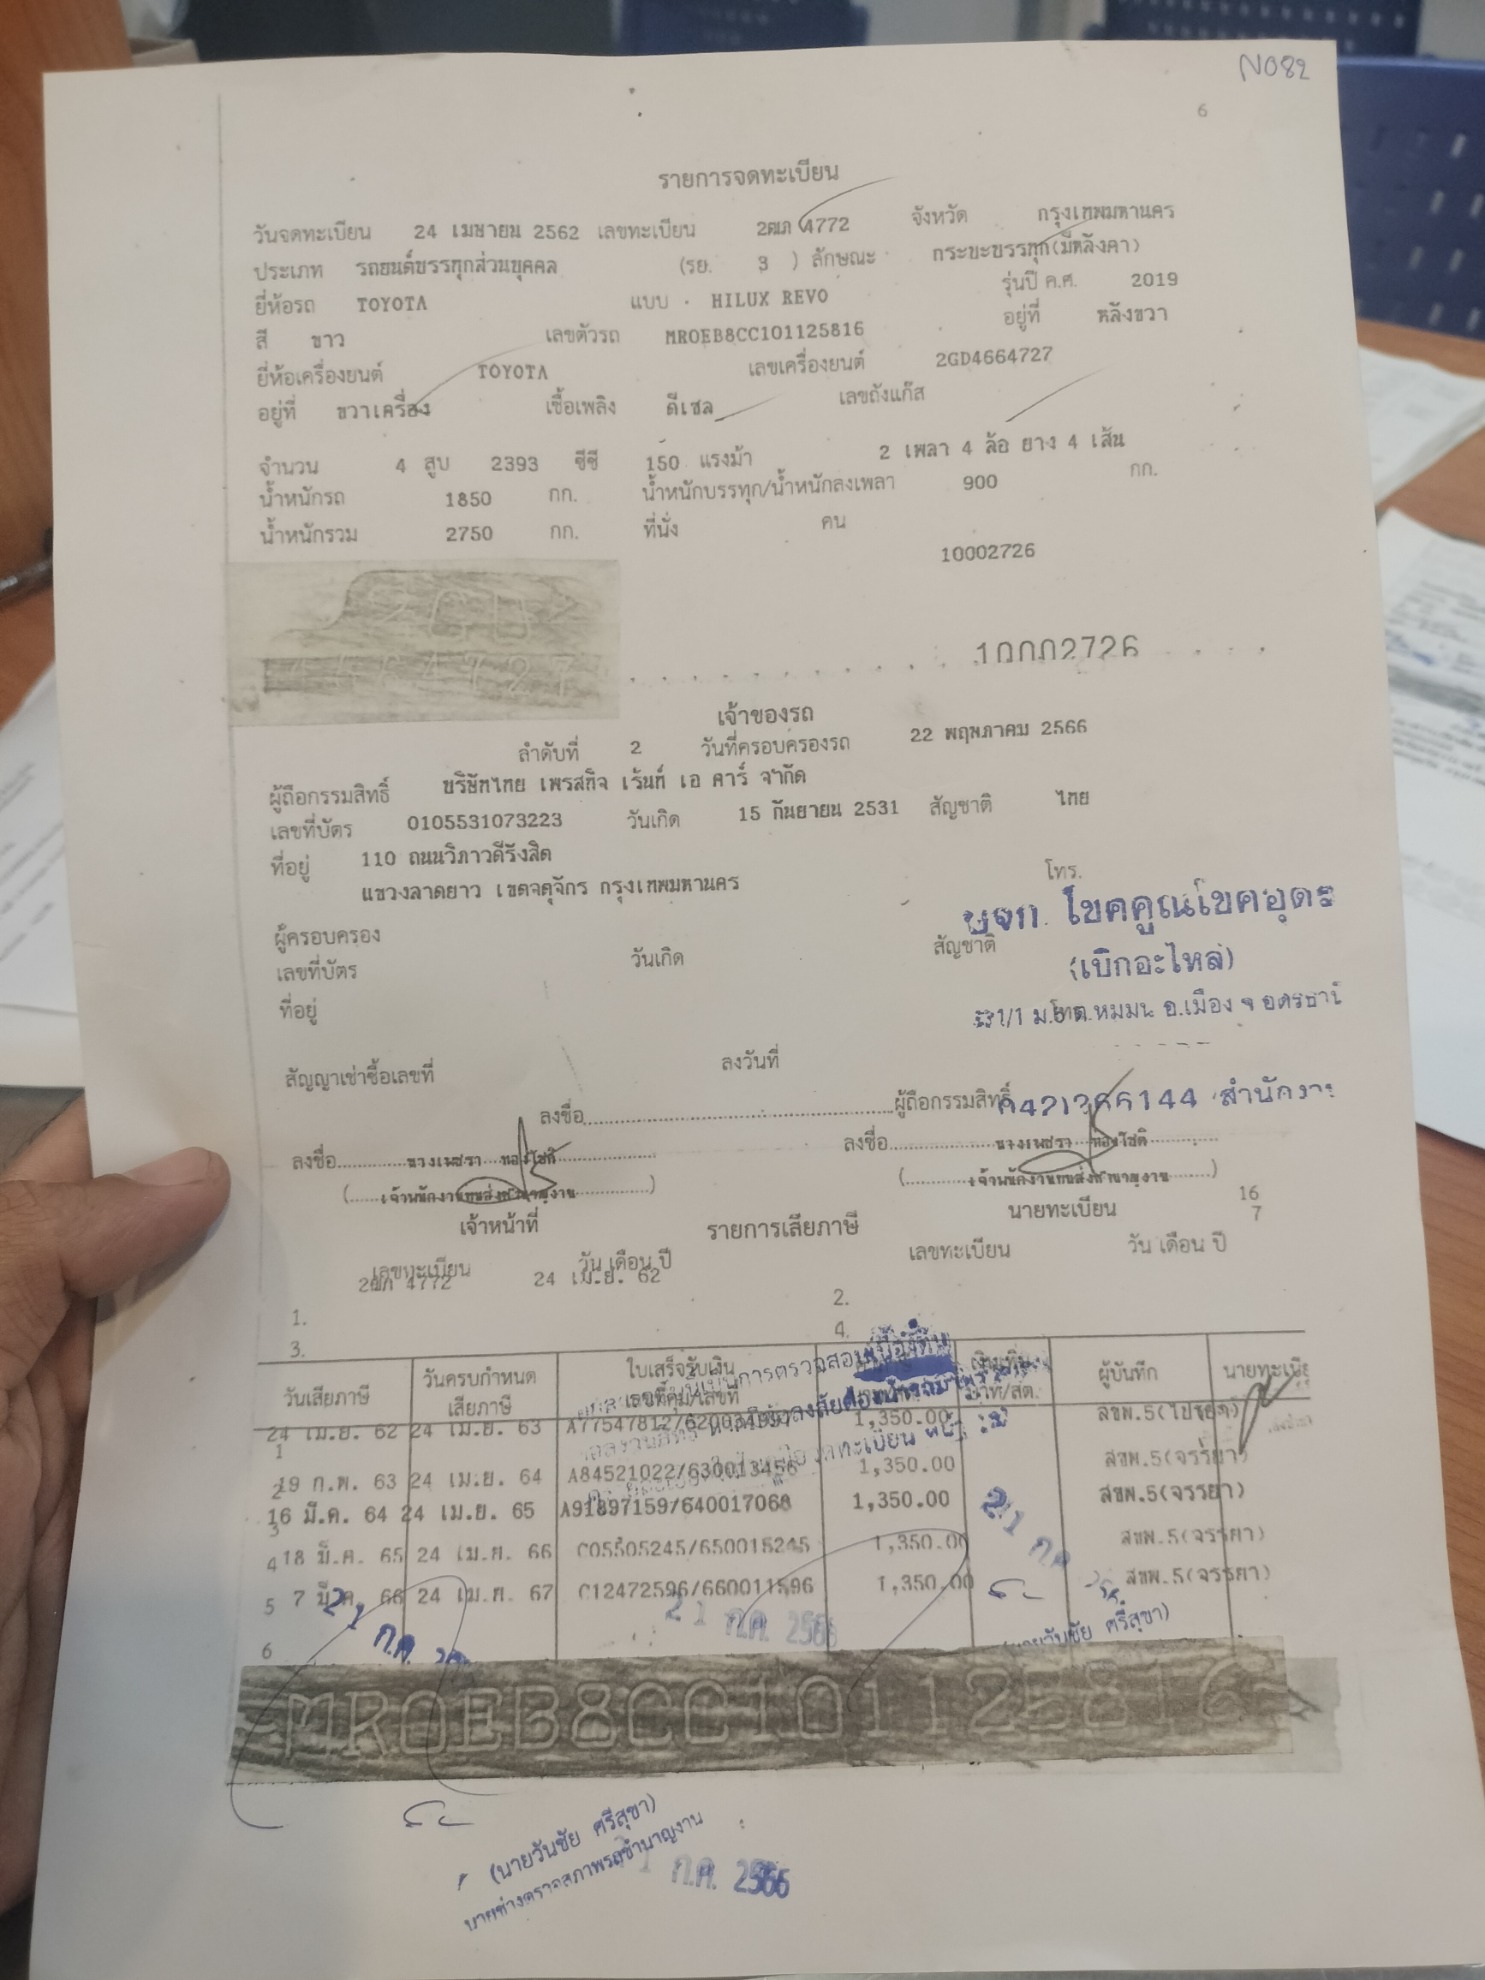 N082
6
รายการจดทะเบียน
วันจดทะเบียน 24 เมษายน 2562 เลขทะเบียน 2ฒภ 4772 จังหวัด กรุงเทพมหานคร
ประเภท รถยนต์บรรทุกส่วนบุคคล (รย. 3 ) ลักษณะ กระบะบรรทุก(มีหลังคา)
ยี่ห้อรถ TOYOTA แบบ HILUX REVO รุ่นปี ค.ศ. 2019
สี ขาว เลขตัวรถ MROEB8CC101125816 อยู่ที่ หลังขวา
ยี่ห้อเครื่องยนต์ TOYOTA เลขเครื่องยนต์ 2GD4664727
อยู่ที่ ขวาเครื่อง เชื้อเพลิง ดีเซล เลขถังแก๊ส
จำนวน 4 สูบ 2393 ซีซี 150 แรงม้า 2 เพลา 4 ล้อ ยาง 4 เส้น
น้ำหนักรถ 1850 กก. น้ำหนักบรรทุก/น้ำหนักลงเพลา 900 กก.
น้ำหนักรวม 2750 กก. ที่นั่ง คน
10002726
2GD
4664727
10002726
เจ้าของรถ
ลำดับที่ 2 วันที่ครอบครองรถ 22 พฤษภาคม 2566
ผู้ถือกรรมสิทธิ์ บริษัทไทย เพรสทิจ เร้นท์ เอ คาร์ จำกัด
เลขที่บัตร 0105531073223 วันเกิด 15 กันยายน 2531 สัญชาติ ไทย
ที่อยู่ 110 ถนนวิภาวดีรังสิต
แขวงลาดยาว เขตจตุจักร กรุงเทพมหานคร โทร.
บจก. โชคคูณโชคอุดร
ผู้ครอบครอง
เลขที่บัตร วันเกิด สัญชาติ
(เบิกอะไหล่)
ที่อยู่ โทร.
ต.หมูม่น อ.เมือง จ.อุดรธานี
สัญญาเช่าซื้อเลขที่ ลงวันที่
ลงชื่อ ผู้ถือกรรมสิทธิ์
สำนักงาน
ลงชื่อ นางเพชรา ทองโชติ ลงชื่อ นางเพชรา ทองโชติ
(เจ้าพนักงานขนส่งชำนาญงาน) (เจ้าพนักงานขนส่งชำนาญงาน)
เจ้าหน้าที่ นายทะเบียน 16
รายการเสียภาษี 7
เลขทะเบียน วัน เดือน ปี เลขทะเบียน วัน เดือน ปี
2ฒภ 4772 24 เม.ย. 62
1. 2.
3. 4.
วันเสียภาษี วันครบกำหนดเสียภาษี ใบเสร็จรับเงิน เลขที่คุม/เลขที่ เงินเพิ่ม บาท/สต. ผู้บันทึก
24 เม.ย. 62 24 เม.ย. 63 1,350.00
1
19 ก.พ. 63 24 เม.ย. 64 A84521022/630013456 1,350.00 สขพ.5(จรรยา)
2
16 มี.ค. 64 24 เม.ย. 65 A91897159/640017068 1,350.00 สขพ.5(จรรยา)
3
4 18 มี.ค. 65 24 เม.ย. 66 C05505245/650015245 1,350.00 สขพ.5(จรรยา)
5 7 มี.ค. 66 24 เม.ย. 67 C12472596/660011596 1,350.00 สขพ.5(จรรยา)
21 ก.ค. 2566
6 21 ก.ค.
(นายวันชัย ศรีสุขา)
MROEB8CC101125816
(นายวันชัย ศรีสุขา)
นายช่างตรวจสภาพรถชำนาญงาน
21 ก.ค. 2566